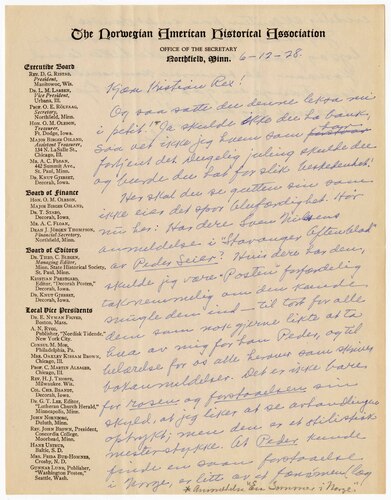 The Norwegian American Historical Association
OFFICE OF THE SECRETARY
Northfield, Minn.
6-12-28.
Executive Board
REV. D. G. RISTAD,
President,
Manitowoc, Wis.
DR. L. M. LARSEN,
Vice President,
Urbana, Ill.
PROF. O. E. RÖLVAAG,
Secretary,
Northfield, Minn.
HON. O. M. OLESON,
Treasurer,
Ft. Dodge, Iowa.
MAJOR BIRGER OSLAND,
Assistant Treasurer,
134 N. LaSalle St.,
Chicago, Ill.
MR. A. C. FLOAN,
442 Summit Ave.,
St. Paul, Minn.
DR. KNUT GJERSET,
Decorah, Iowa.
Board of Finance
HON. O. M. OLESON,
MAJOR BIRGER OSLAND,
DR. T. STABO,
Decorah, Iowa.
MR. A. C. FLOAN,
DEAN J. JÖRGEN THOMPSON,
Financial Secretary,
Northfield, Minn.
Board of Editors
DR. THEO. C. BLEGEN,
Managing Editor,
Minn. State Historical Society,
St. Paul, Minn.
KRISTIAN PRESTGARD,
Editor, "Decorah Posten,"
Decorah, Iowa.
DR. KNUT GJERSET,
Decorah, Iowa.
Local Vice Presidents
DR. E. NYMAN FIGVED,
Boston, Mass.
A. N. RYGG,
Publisher, "Nordisk Tidende,"
New York City.
CONSUL M. MOE,
Philadelphia.
MRS. OAKLEY KIELLAND BROWN,
Chicago, Ill.
PROF. C. MARTIN ALSAGER,
Chicago, Ill.
REV. H. J. THORPE,
Milwaukee, Wis.
COL. CHR. BRANDT,
Decorah, Iowa.
DR. G. T. LEE, EDITOR
"Lutheran Church Herald,"
Minneapolis, Minn.
JOHN NORNBORG,
Duluth, Minn.
REV. JOHN BROWN, PRESIDENT
Concordia College,
Moorhead, Minn.
HANS USTRUD,
Baltic, S. D.
MRS. FRIDA BUE-HOMNES,
Crosby, N. D.
GUNNAR LUND, PUBLISHER,
"Washington Posten,"
Seattle, Wash.
Kjære Kristian Red!
Og saa satte du denne leksa mi
i petit! Ja skulde ikke du ha bank,
saa vet ikke jeg hvem som
fortjent det. Dugelig juling skulde du
og bunde du hat for slik bestedenhet!
Her skal du se gutten sin som
ikke eies det spor
nu her: Har dere Sven
anmeldelse i "Stavanger Aftenblad"
av Peder Seier? Hvis dere har den,
skulde jeg være Posten
taknemmelig om den kunde
smugle den ind – til tort for alle
dem som nok gjerne likte at ta
bua av mig for han Peder, og til
belærelse for os alle herover som skriver
bokanmeldelser. Det er ikke bare
for rosen og forstaaelsen sin
skyld, at jeg liker at se avhandlingen
optrykt; men den er et stilistisk
mesterstykke. At Peder kunde
finde en saan forstaaelse
i Norge, er litt av et fænomen (og
* Anmeldte "En Sommer i Norge".